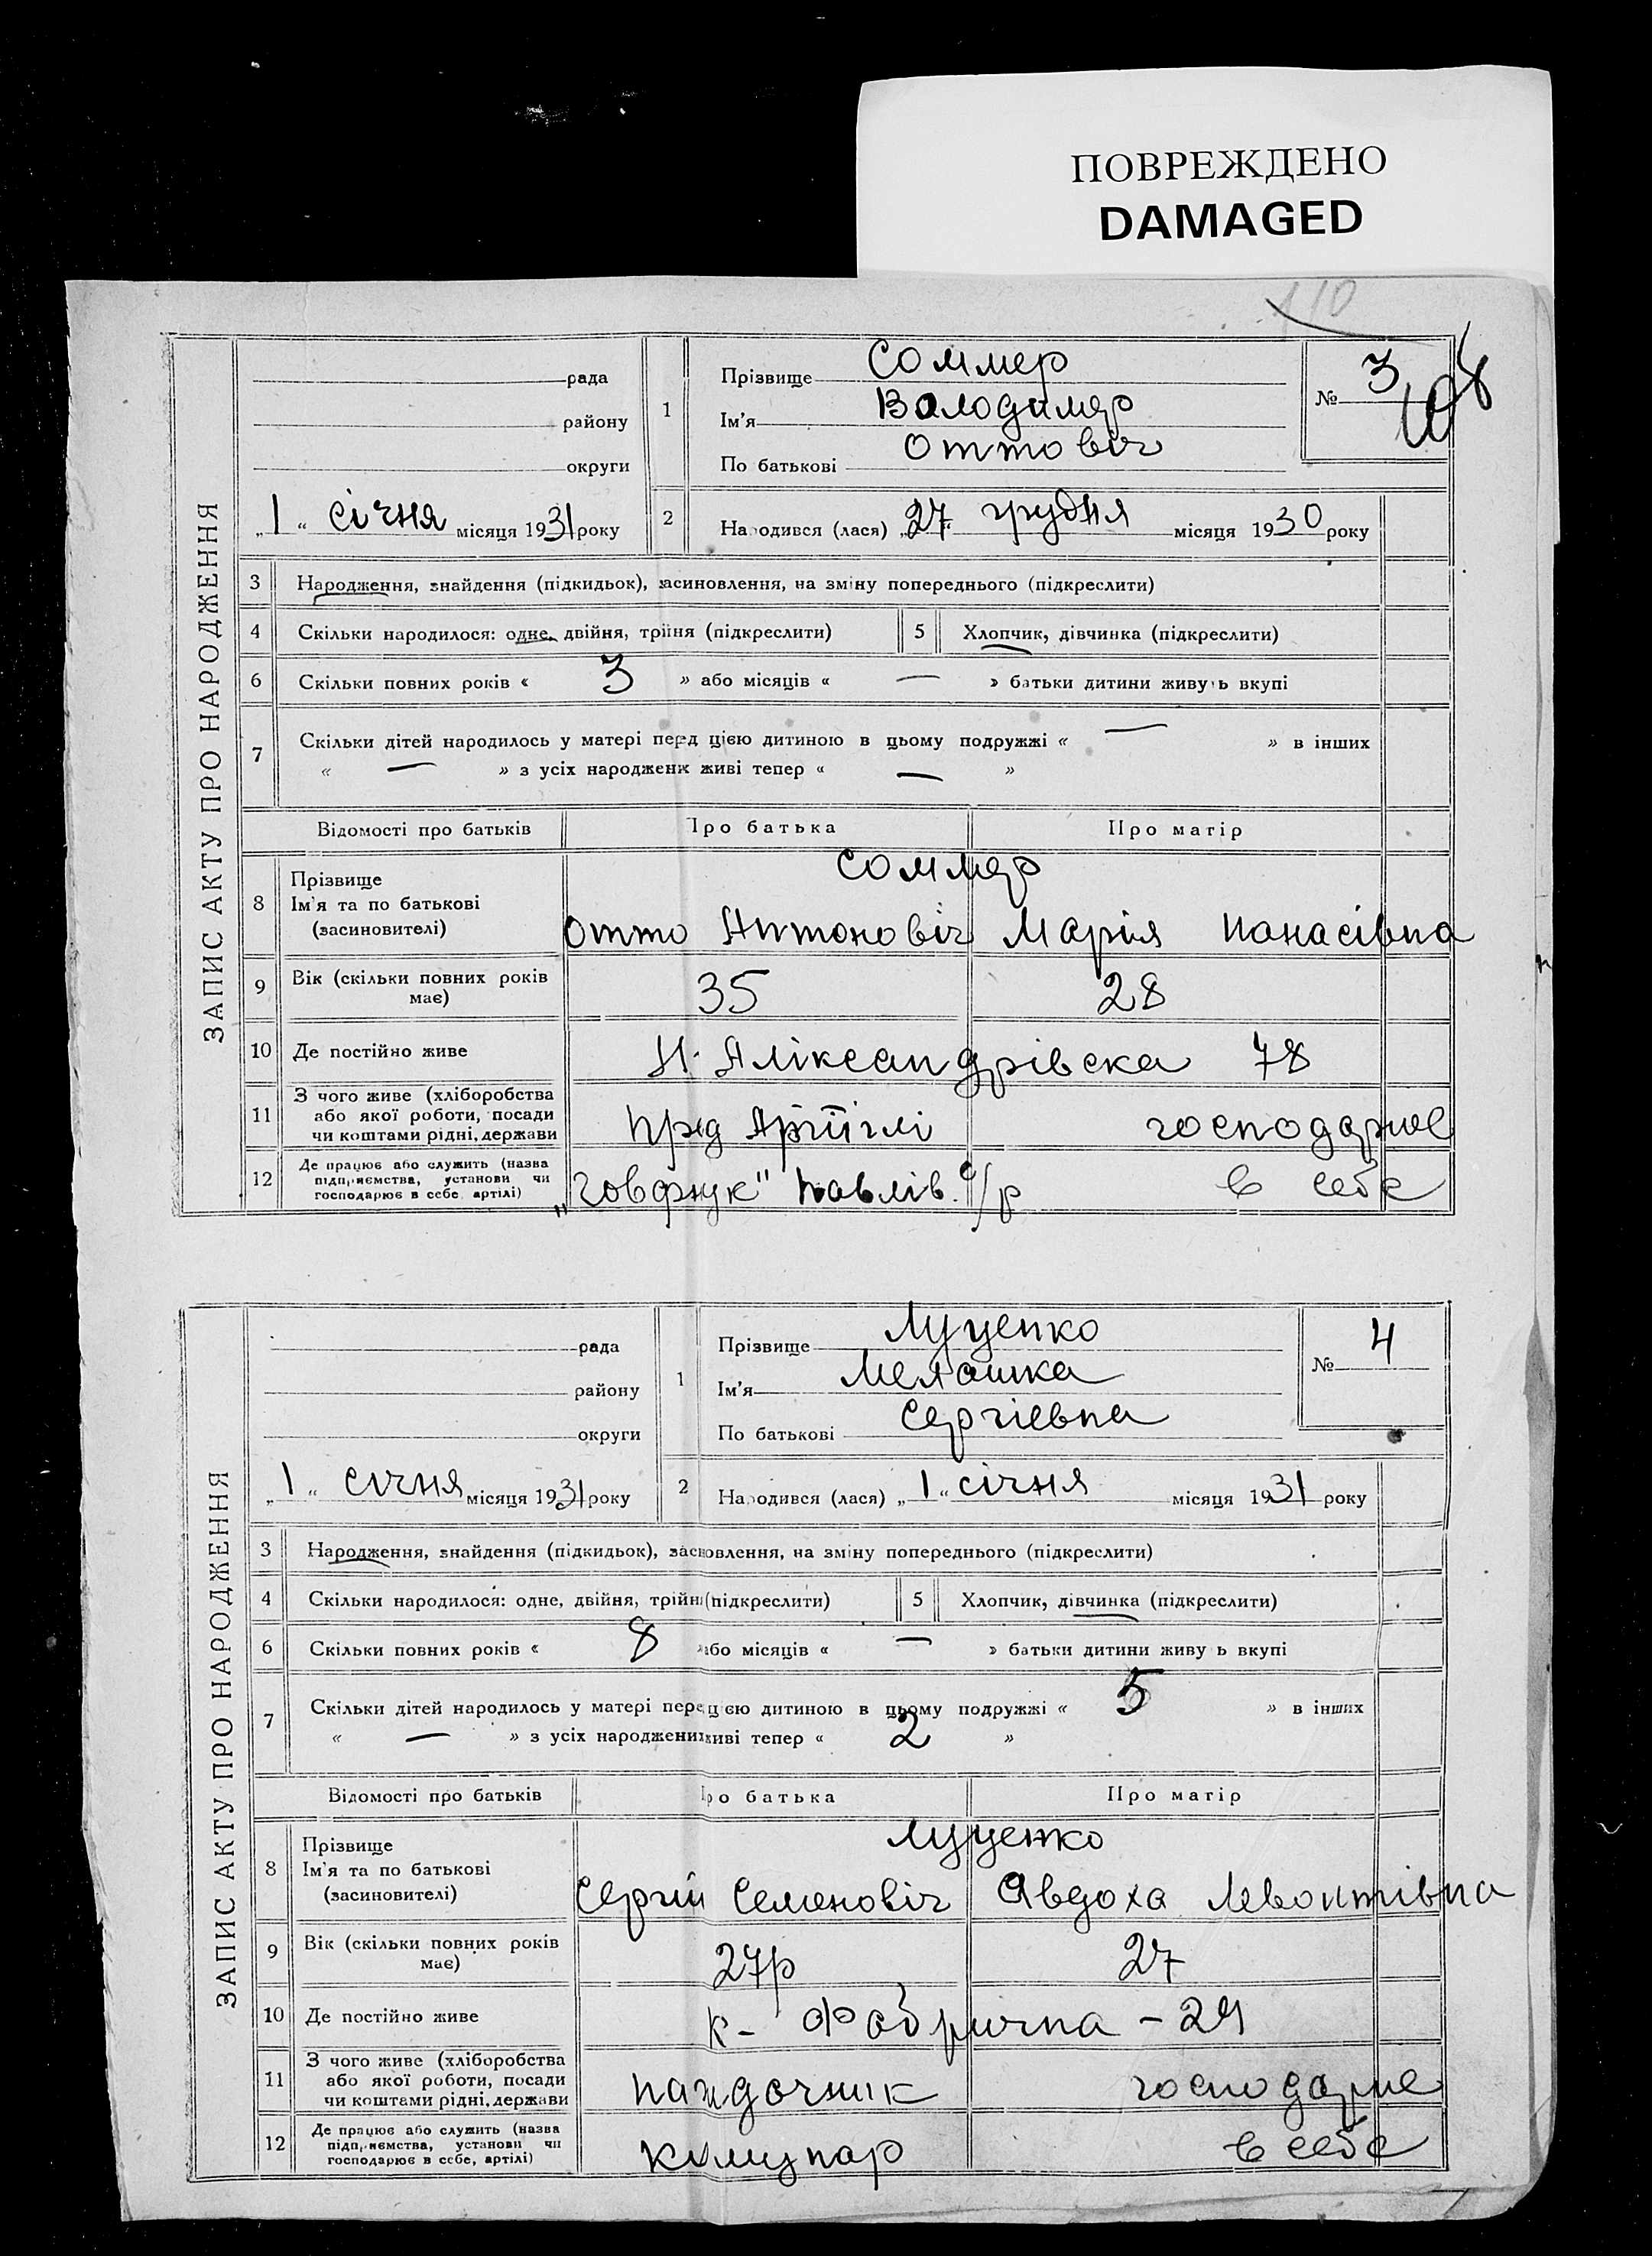 ПОВРЕЖДЕНО
DAMAGED
110
ЗАПИС АКТУ ПРО НАРОДЖЕННЯ
рада
району
округи
„1“ січня місяця 1931 року
1
Прізвище Соммер
Ім'я Володимер
По батькові Оттовіч
№ 3
108
2 Народився (лася) „27“ грудня місяця 1930 року
3 Народження, знайдення (підкидьок), засиновлення, на зміну попереднього (підкреслити)
4 Скільки народилося: одне, двійня, трійня (підкреслити)
5 Хлопчик, дівчинка (підкреслити)
6 Скільки повних років « 3 » або місяців « — » батьки дитини живуть вкупі
7 Скільки дітей народилось у матері перед цією дитиною в цьому подружжі « — » в інших
« — » з усіх народжених живі тепер « — »
Відомості про батьків Про батька Про матір
8 Прізвище
Ім'я та по батькові
(засиновителі)
Соммер
Отто Антоновіч Марія Панасівна
9 Вік (скільки повних років
має)
35 28
10 Де постійно живе Н. Аліксандрівска 78
11 З чого живе (хліборобства
або якої роботи, посади
чи коштами рідні, держави
пред Артілі господарює
12 Де працює або служить (назва
підприємства, установи чи
господарює в себе, артілі)
Павлів. с/р в себе
ЗАПИС АКТУ ПРО НАРОДЖЕННЯ
рада
району
округи
„1“ січня місяця 1931 року
1
Прізвище Луценко
Ім'я Мелашка
По батькові Сергіевна
№ 4
2 Народився (лася) „1“ січня місяця 1931 року
3 Народження, знайдення (підкидьок), засиновлення, на зміну попереднього (підкреслити)
4 Скільки народилося: одне, двійня, трійня (підкреслити)
5 Хлопчик, дівчинка (підкреслити)
6 Скільки повних років « 8 » або місяців « — » батьки дитини живуть вкупі
7 Скільки дітей народилось у матері перед цією дитиною в цьому подружжі « 5 » в інших
« — » з усіх народжених живі тепер « 2 »
Відомості про батьків Про батька Про матір
8 Прізвище
Ім'я та по батькові
(засиновителі)
Луценко
Сергій Семеновіч Явдоха Левонтівна
9 Вік (скільки повних років
має)
27р 27
10 Де постійно живе К- Фабрична - 29
11 З чого живе (хліборобства
або якої роботи, посади
чи коштами рідні, держави
господарює
12 Де працює або служить (назва
підприємства, установи чи
господарює в себе, артілі)
комунар в себе